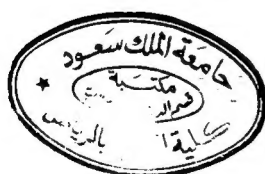 جامعة الملك سعود
مكتبة
كلية
بالرياض